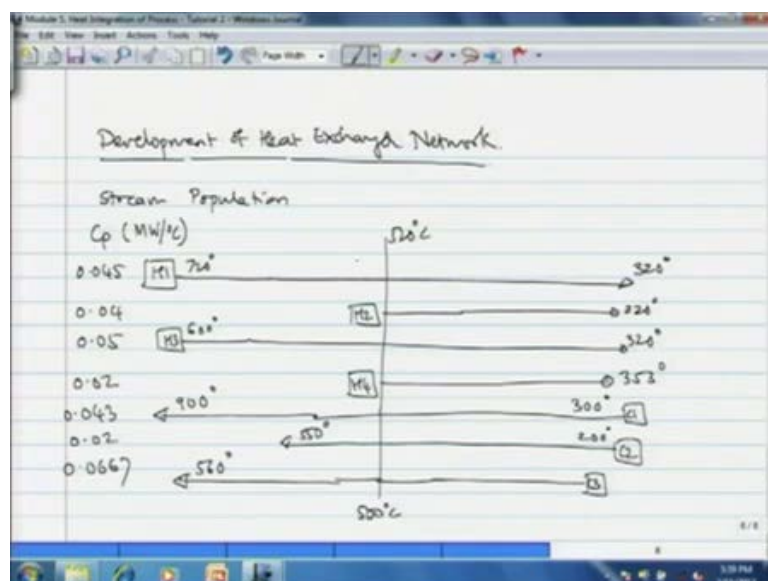 Module 5. Heat Integration of Process - Tutorial 2 - Windows Journal
File Edit View Insert Actions Tools Help
Page Width
Development of Heat Exchanger Network.
Stream Population
Cp (MW/°C)
520°C
0.045 H1 720° 320°
0.04 H2 220°
0.05 H3 600° 320°
0.02 H4 353°
0.043 900° 300° C1
0.02 550° 200° C2
0.0667 560° C3
500°C
8
5:39 PM